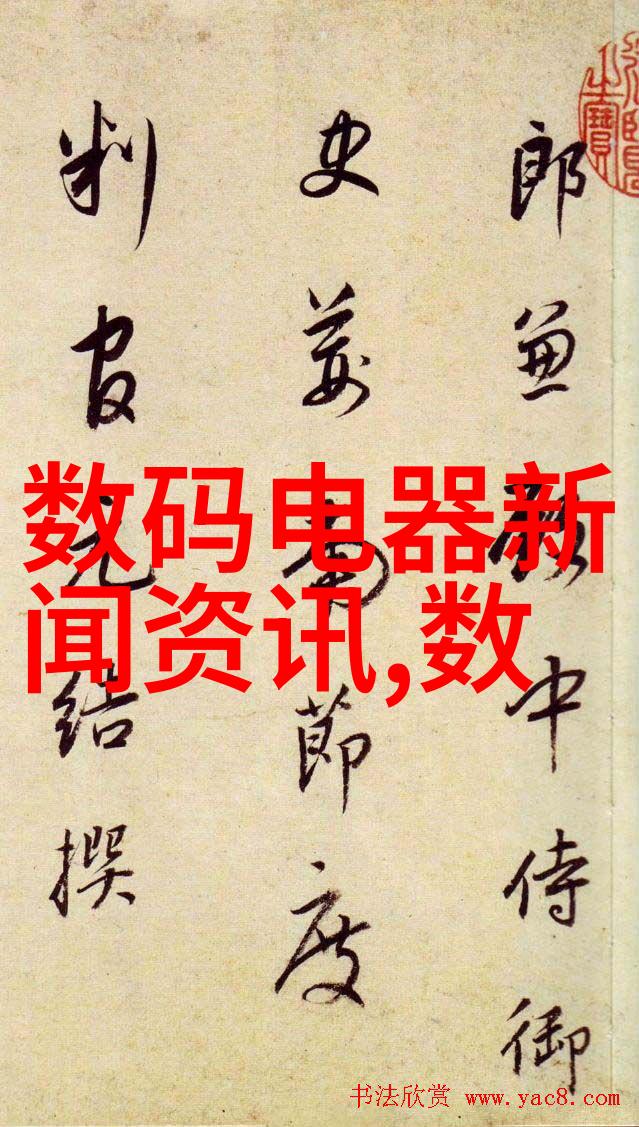 郎兼殿中侍御
史荊南節度
判官元結撰
数码电器新
闻资讯,数
书法欣赏 www.yac8.com